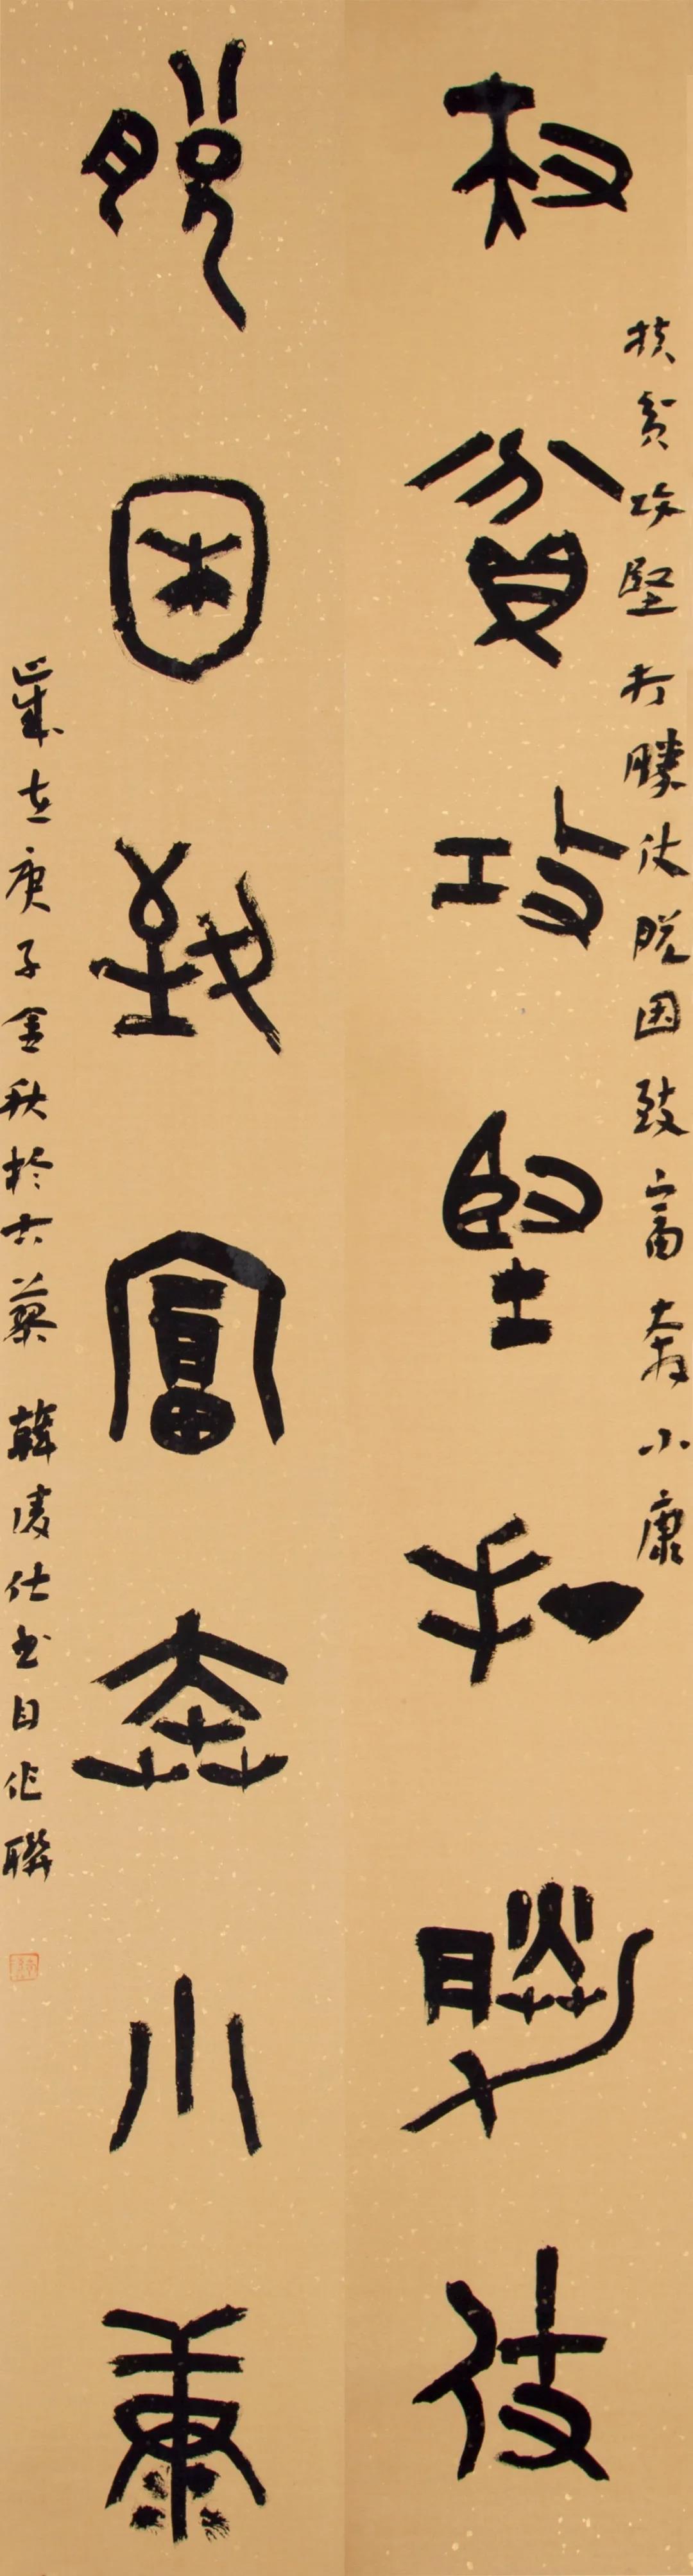 扶貧攻堅打勝仗
扶貧攻堅打勝仗脫困致富奔小康
脫困致富奔小康
歲在庚子金秋於古蔡韓凌仕書自作聯